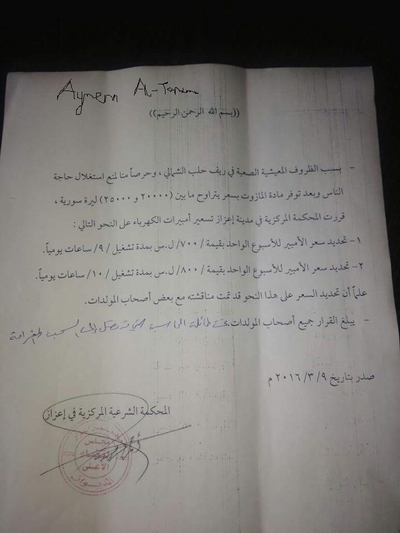 Aymen Al-
((بسم الله الرحمن الرحيم))
- بسبب الظروف المعيشية الصعبة في ريف حلب الشمالي، وحرصاً منا لمنع استغلال حاجة
الناس وبعد توفر مادة المازوت بسعر يتراوح ما بين (٢٠٠٠٠ و ٢٥٠٠٠) ليرة سورية ،
قررت المحكمة المركزية في مدينة إعزاز تسعير أمبيرات الكهرباء على النحو التالي :
١- تحديد سعر الأمبير للأسبوع الواحد بقيمة /٧٠٠/ل.س بمدة تشغيل /٩/ ساعات يومياً.
٢- تحديد سعر الأمبير للأسبوع الواحد بقيمة /٨٠٠/ ل.س بمدة تشغيل /١٠/ ساعات يومياً.
علماً أن تحديد السعر على هذا النحو قد تمت مناقشته مع بعض أصحاب المولدات.
- يبلغ القرار جميع أصحاب المولدات
صدر بتاريخ ٩ /٣ /٢٠١٦ م
المحكمة الشرعية المركزية في إعزاز